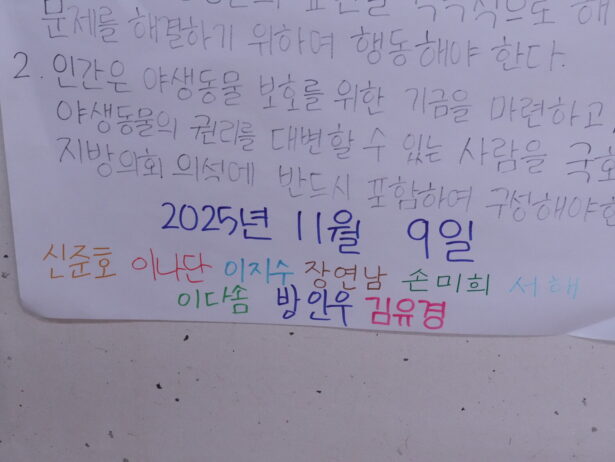 문제를 해결하기 위하여 행동해야 한다.
2. 인간은 야생동물 보호를 위한 기금을 마련하고
야생동물의 권리를 대변할 수 있는 사람을 국회
지방의회 의석에 반드시 포함하여 구성해야한
2025년 11월 9일
신준호 이나단 이지수 장연남 손미희 서해
이다솜 방인우 김유경